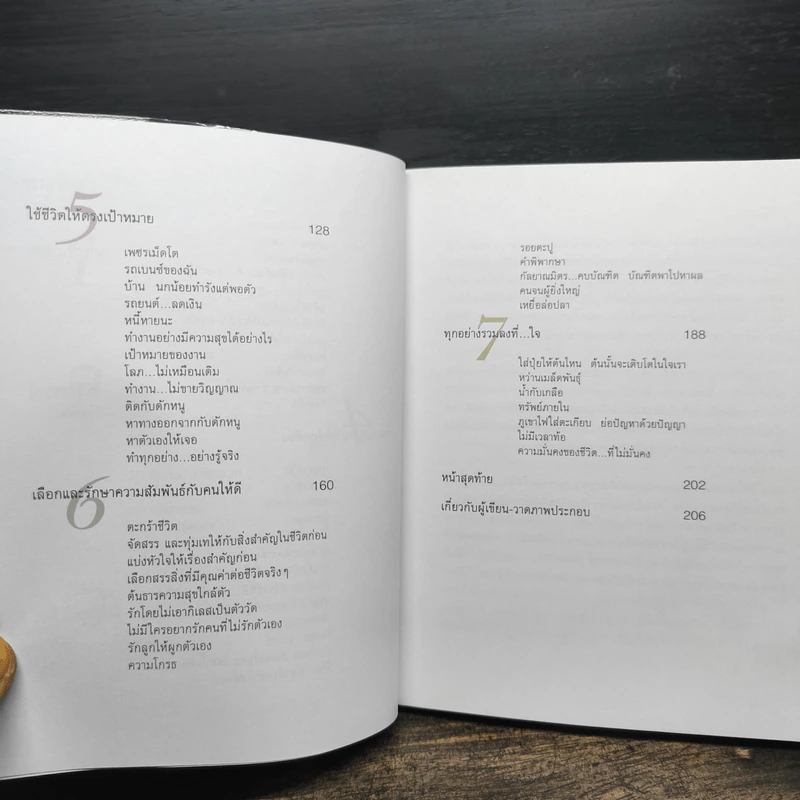 5
ใช้ชีวิตให้ตรงเป้าหมาย 128
เพชรเม็ดโต
รถเบนซ์ของฉัน
บ้าน นกน้อยทำรังแต่พอตัว
รถยนต์...ลดเงิน
หนี้หายนะ
ทำงานอย่างมีความสุขได้อย่างไร
เป้าหมายของงาน
โลภ...ไม่เหมือนเดิม
ทำงาน...ไม่ขายวิญญาณ
ติดกับดักหนู
หาทางออกจากกับดักหนู
หาตัวเองให้เจอ
ทำทุกอย่าง...อย่างรู้จริง
6
เลือกและรักษาความสัมพันธ์กับคนให้ดี 160
ตะกร้าชีวิต
จัดสรร และทุ่มเทให้กับสิ่งสำคัญในชีวิตก่อน
แบ่งหัวใจให้เรื่องสำคัญก่อน
เลือกสรรสิ่งที่มีคุณค่าต่อชีวิตจริงๆ
ต้นธารความสุขใกล้ตัว
รักโดยไม่เอากิเลสเป็นตัววัด
ไม่มีใครอยากรักคนที่ไม่รักตัวเอง
รักลูกให้ผูกตัวเอง
ความโกรธ
รอยตะปู
คำพิพากษา
กัลยาณมิตร...คบบัณฑิต บัณฑิตพาไปหาผล
คนจนผู้ยิ่งใหญ่
เหยื่อล่อปลา
7
ทุกอย่างรวมลงที่...ใจ 188
ใส่ปุ๋ยให้ต้นไหน ต้นนั้นจะเติบโตในใจเรา
หว่านเมล็ดพันธุ์
น้ำกับเกลือ
ทรัพย์ภายใน
ภูเขาไฟใส่ตะเกียบ ย่อปัญหาด้วยปัญญา
ไม่มีเวลาท้อ
ความมั่นคงของชีวิต...ที่ไม่มั่นคง
หน้าสุดท้าย 202
เกี่ยวกับผู้เขียน-วาดภาพประกอบ 206